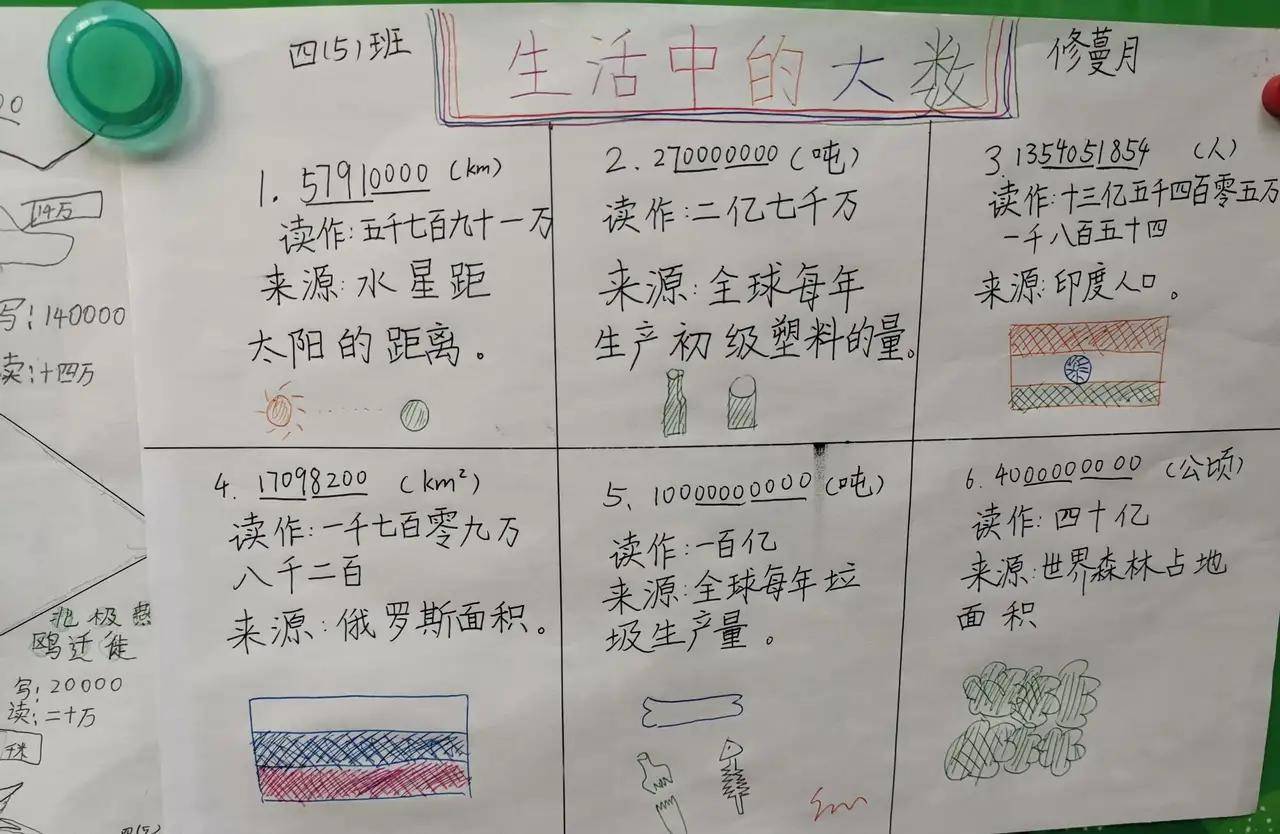 四(5)班
生活中的大数
修蔓月
1. 57910000 (km)
读作:五千七百九十一万
来源:水星距
太阳的距离。
2. 270000000 (吨)
读作:二亿七千万
来源:全球每年
生产初级塑料的量。
3. 1354051854 (人)
读作:十三亿五千四百零五万
一千八百五十四
来源:印度人口。
4. 17098200 (km²)
读作:一千七百零九万
八千二百
来源:俄罗斯面积。
5. 10000000000 (吨)
读作:一百亿
来源:全球每年垃
圾生产量。
6. 4000000000 (公顷)
读作:四十亿
来源:世界森林占地
面积
14万
写:140000
读:十四万
北极燕
鸥迁徙
写:20000
读:二十万